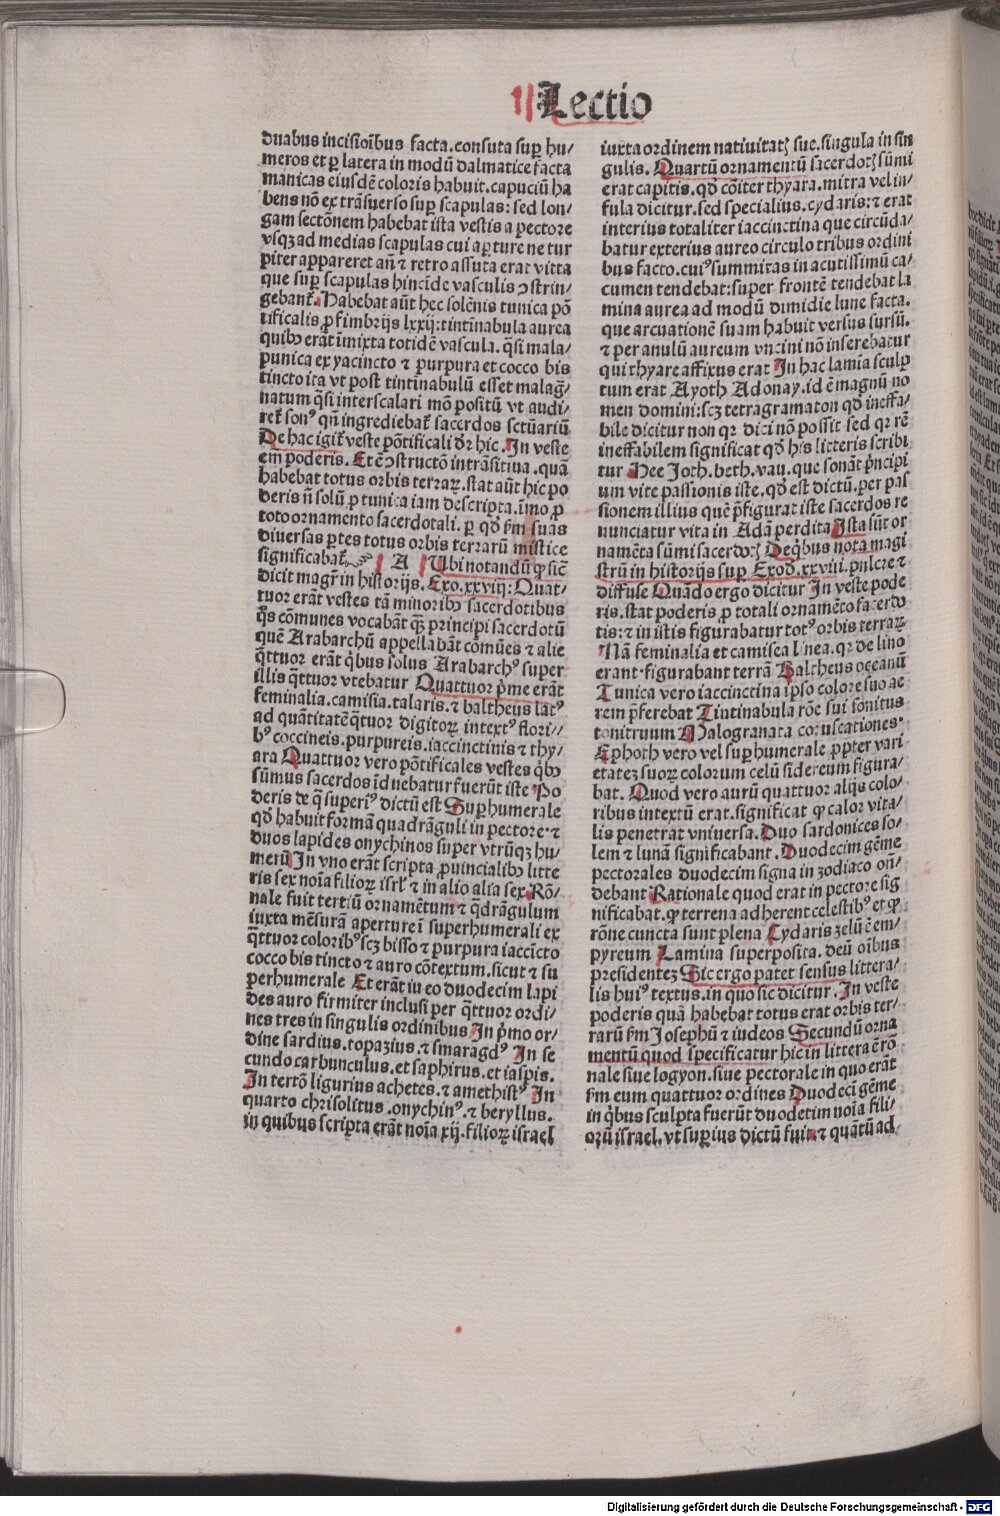 Lectio
duabus incisiōibus facta.consuta suꝑ hu/
meros et ꝑ latera in modū dalmatice facta
manicas eiusdē coloris habuit.capuciū ha
bens nō ex trāsuerso suꝑ scapulas: sed lon/
gam sectōnem habebat ista vestis a pectore
vsqꝫ ad medias scapulas cui aꝑture ne tur
piter appareret añ ⁊ retro assuta erat vitta
que suꝑ scapulas hincīde vasculis ↄstrin/
gebant᷑. Habebat aūt hec solēnis tunica pō
tificalis ꝓ fimbrijs lxxij: tintinabula aurea
quibꝰ erāt īmixta totidē vascula. q̄si mala/
punica ex yacincto ⁊ purpura et cocco bis
tincto ita vt post tintinabulū esset malag̃/
natum q̄si interscalari mō positū vt audi/
ret᷑ sonꝰ qn̄ ingrediebat᷑ sacerdos sctūariū
De hac igit᷑ veste pōtificali dr̄ hic. In veste
em̄ poderis. Et ē ↄstructō intrāsitiua .quā
habebat totus orbis terraꝝ.stat aūt hic po
deris nō solū ꝓ tunica iam descripta.īmo ꝓ
toto ornamento sacerdotali. ꝑ qd̄ fm̄ suas
diuersas ꝑtes totus orbis terrarū mistice
significabat᷑. A Ubi notandū ꝙ sic̄
dicit magr̄ in historijs. Exo.xxviij: Quat/
tuor erāt vestes tā minoribꝰ sacerdotibus
q̄s cōmunes vocabāt q̄ꝫ principi sacerdotū
quē Arabarchū appellabāt cōmūes ⁊ alie
q̄ttuor erāt q̇bus solus Arabarchꝰ super
illis q̄ttuor vtebatur Quattuor p̄me erāt
feminalia.camisia.talaris.⁊ baltheus latꝰ
ad quātitatē q̄tuor digitoꝝ intextꝰ flori/
bꝰ coccineis.purpureis.iaccinctinis ⁊ thy/
ara Quattuor vero pōtificales vestes q̇bꝰ
sūmus sacerdos īduebatur fuerūt iste Po
deris de q̄ superiꝰ dictū est Suꝑhumerale
qd̄ habuit formā quadrāguli in pectore.⁊
duos lapides onychinos super vtrūqꝫ hu/
merū In vno erāt scripta ꝓuincialibꝰ litte
ris sex noīa filioꝝ isrl̄ ⁊ in alio alia sex.Rō/
nale fuit tertiū ornamētum ⁊ q̄drāgulum
iuxta mēsurā aperture ī superhumerali ex
q̄ttuor coloribꝰ scꝫ bisso ⁊ purpura iaccīcto
cocco bis tincto ⁊ auro cōtextum.sicut ⁊ su
perhumerale Et erāt in eo duodecim lapi
des auro firmiter inclusi per q̄ttuor ordi/
nes tres in singulis ordinibus In p̄mo or/
dine sardius.topazius.⁊ smaragdꝰ In se
cundo carbunculus.et saphirus.et iaspis.
In tertō ligurius achetes.⁊ amethistꝰ In
quarto chrisolitus.onychinꝰ.⁊ beryllus.
in quibus scripta erāt noīa xij.filioꝝ israel
iuxta ordinem natiuitatꝭ sue.singula in sin
gulis. Quartū ornamentū sacerdotꝭ sūmi
erat capitis.qd̄ cōiter thyara.mitra vel in/
fula dicitur.sed specialius.cydaris:⁊ erat
interius totaliter iaccinctina que circūda/
batur exterius aureo circulo tribus ordini
bus facto.cuiꝰ summitas in acutissimū ca/
cumen tendebat: super frontē tendebat la
mina aurea ad modū dimidie lune facta.
que arcuationē suam habuit versus sursū.
⁊ per anulū aureum vncini nō inserebatur
qui thyare affixus erat In hac lamīa sculꝑ
tum erat Ayoth Adonay.id ē magnū no
men domini:scꝫ tetragramaton qd̄ ineffa/
bile dicitur non qꝛ dici nō possit sed qꝛ rē
ineffabilem significat qd̄ his litteris scribi
tur Hee Joth.heth.vau.que sonāt p̄ncipi
um vite passionis iste.qd̄ est dictū.per pas
sionem illius quē p̄figurat iste sacerdos re
nunciatur vita in Adā perdita Ista sūt or
namēta sūmi sacerdotꝭ De q̇bus nota magi
strū in historijs suꝑ Exod.xxviii.pulcre ⁊
diffuse Quādo ergo dicitur In veste pode
ris.stat poderis ꝓ totali ornamēto sacerdo
tis:⁊ in istis figurabatur totꝰ orbis terraꝝ
Nā feminalia et camisea linea.qꝛ de lino
erant.figurabant terrā Baltheus oceanū
Tunica vero iaccinctina ipso colore suo ae
rem p̄ferebat Tintinabula rōe sui sonitus
tonitruum Malogranata coruscationes.
Ephoth vero vel suꝑhumerale ꝓpter vari
etateꝫ suoꝝ colorum celū sidereum figura/
bat. Quod vero aurū quattuor alijs colo/
ribus intextū erat.significat ꝙ calor vita/
lis penetrat vniuersa.Duo sardonices so/
lem ⁊ lunā significabant .Duodecim gēme
pectorales duodecim signa in zodiaco oñ/
debant Rationale quod erat in pectore sig
nificabat.ꝙ terrena adherent celestibꝰ et ꝙ
rōne cuncta sunt plena Cydaris celū ē em/
pyreum Lamina superposita.deū oībus
presidenteꝫ Sic ergo patet sensus littera/
lis huiꝰ textus.in quo sic dicitur. In veste
poderis quā habebat totus erat orbis ter/
rarū fm̄ Josephū ⁊ iudeos Secundū orna
mentū quod specificatur hic in littera ē rō
nale siue logyon.siue pectorale in quo erāt
fm̄ eum quattuor ordines Duodeci gēme
in q̇bus sculpta fuerūt duodetim noīa fili/
orū israel.vt suꝑius dictū fuit ⁊ quātū ad
Digitalisierung gefördert durch die Deutsche Forschungsgemeinschaft - DFG